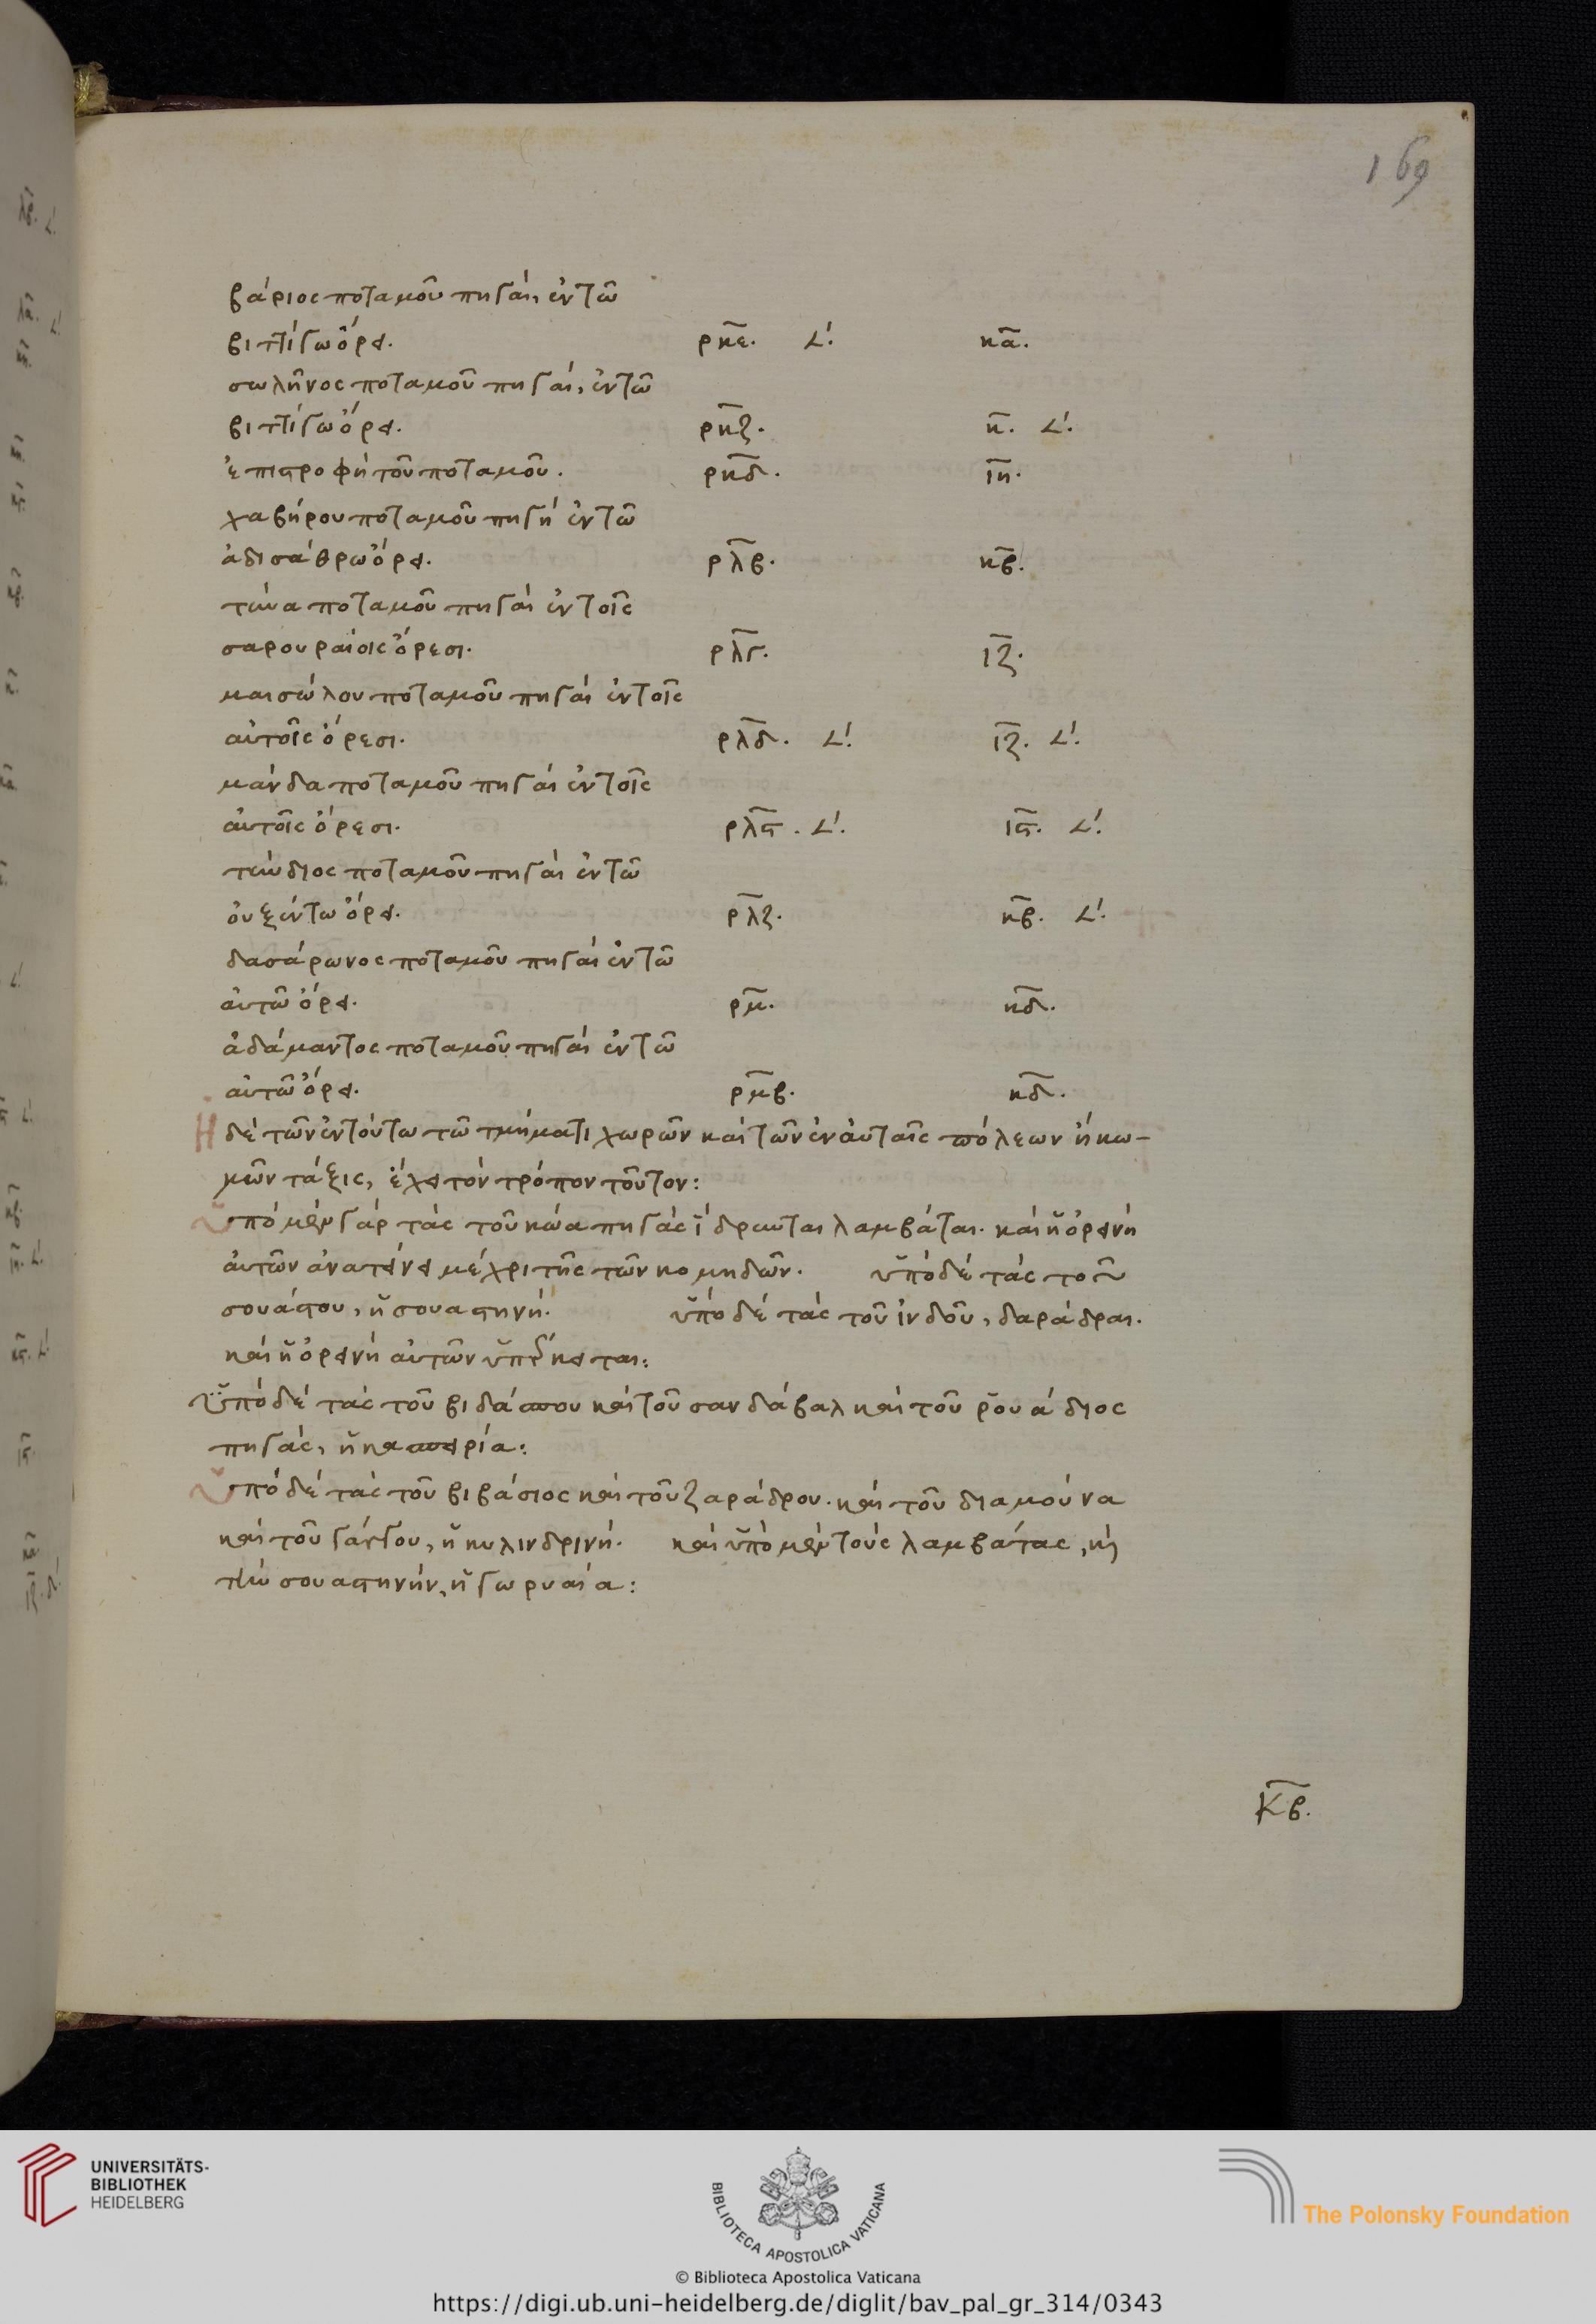 169
βάριος ποταμοῦ πηγαί, ἐν τῶ
βιττίγω ὄρει. ρκε. 𐅵. κα.
σωλῆνος ποταμοῦ πηγαί, ἐν τῶ
βιττίγω ὄρει. ρκζ. κ. 𐅵.
ἐπιστροφὴ τοῦ ποταμοῦ. ρκδ. ιη.
χαβήρου ποταμοῦ πηγὴ ἐν τῶ
ἀδισάθρω ὄρει. ρλβ. κβ.
τύνα ποταμοῦ πηγαὶ ἐν τοῖς
σαρουραίοις ὄρεσι. ρλγ. ιζ.
μαισώλου ποταμοῦ πηγαὶ ἐν τοῖς
αὐτοῖς ὄρεσι. ρλδ. 𐅵. ιζ. 𐅵.
μάνδα ποταμοῦ πηγαὶ ἐν τοῖς
αὐτοῖς ὄρεσι. ρλϛ. 𐅵. ιϛ. 𐅵.
τύνδιος ποταμοῦ πηγαὶ ἐν τῶ
οὐξέντω ὄρει. ρλζ. κβ. 𐅵.
δασάρωνος ποταμοῦ πηγαὶ ἐν τῶ
αὐτῶ ὄρει. ρμ. κδ.
ἀδάμαντος ποταμοῦ πηγαὶ ἐν τῶ
αὐτῶ ὄρει. ρμβ. κδ.
Η δὲ τῶν ἐν τούτω τῶ τμήματι χωρῶν καὶ τῶν ἐν αὐταῖς πόλεων ἢ κω-
μῶν τάξις, ἔχει τὸν τρόπον τοῦτον:
ὑπὸ μὲν γὰρ τὰς τοῦ κώα πηγὰς ἵδρυνται λαμβάται. καὶ ἡ ὀρεινὴ
αὐτῶν ἀνατείνει μέχρι τῆς τῶν κομηδῶν. ὑπὸ δὲ τὰς τοῦ
σουάστου, ἡ σουαστηνή. ὑπὸ δὲ τὰς τοῦ ἰνδοῦ, δαράδραι.
καὶ ἡ ὀρεινὴ αὐτῶν ὑπέρκειται:
ὑπὸ δὲ τὰς τοῦ βιδάσπου καὶ τοῦ σανδάβαλ καὶ τοῦ ῥουάδιος
πηγάς, ἡ κασπειρία:
ὑπὸ δὲ τὰς τοῦ βιβάσιος καὶ τοῦ ζαράδρου. καὶ τοῦ διαμούνα
καὶ τοῦ γάγγου, ἡ κυλινδρινή. καὶ ὑπὸ μὲν τοὺς λαμβάτας, κ̀
τὴν σουαστηνήν, ἡ γωρυαία:
κβ.
UNIVERSITÄTS-
BIBLIOTHEK
HEIDELBERG
BIBLIOTECA APOSTOLICA VATICANA
The Polonsky Foundation
© Biblioteca Apostolica Vaticana
https://digi.ub.uni-heidelberg.de/diglit/bav_pal_gr_314/0343